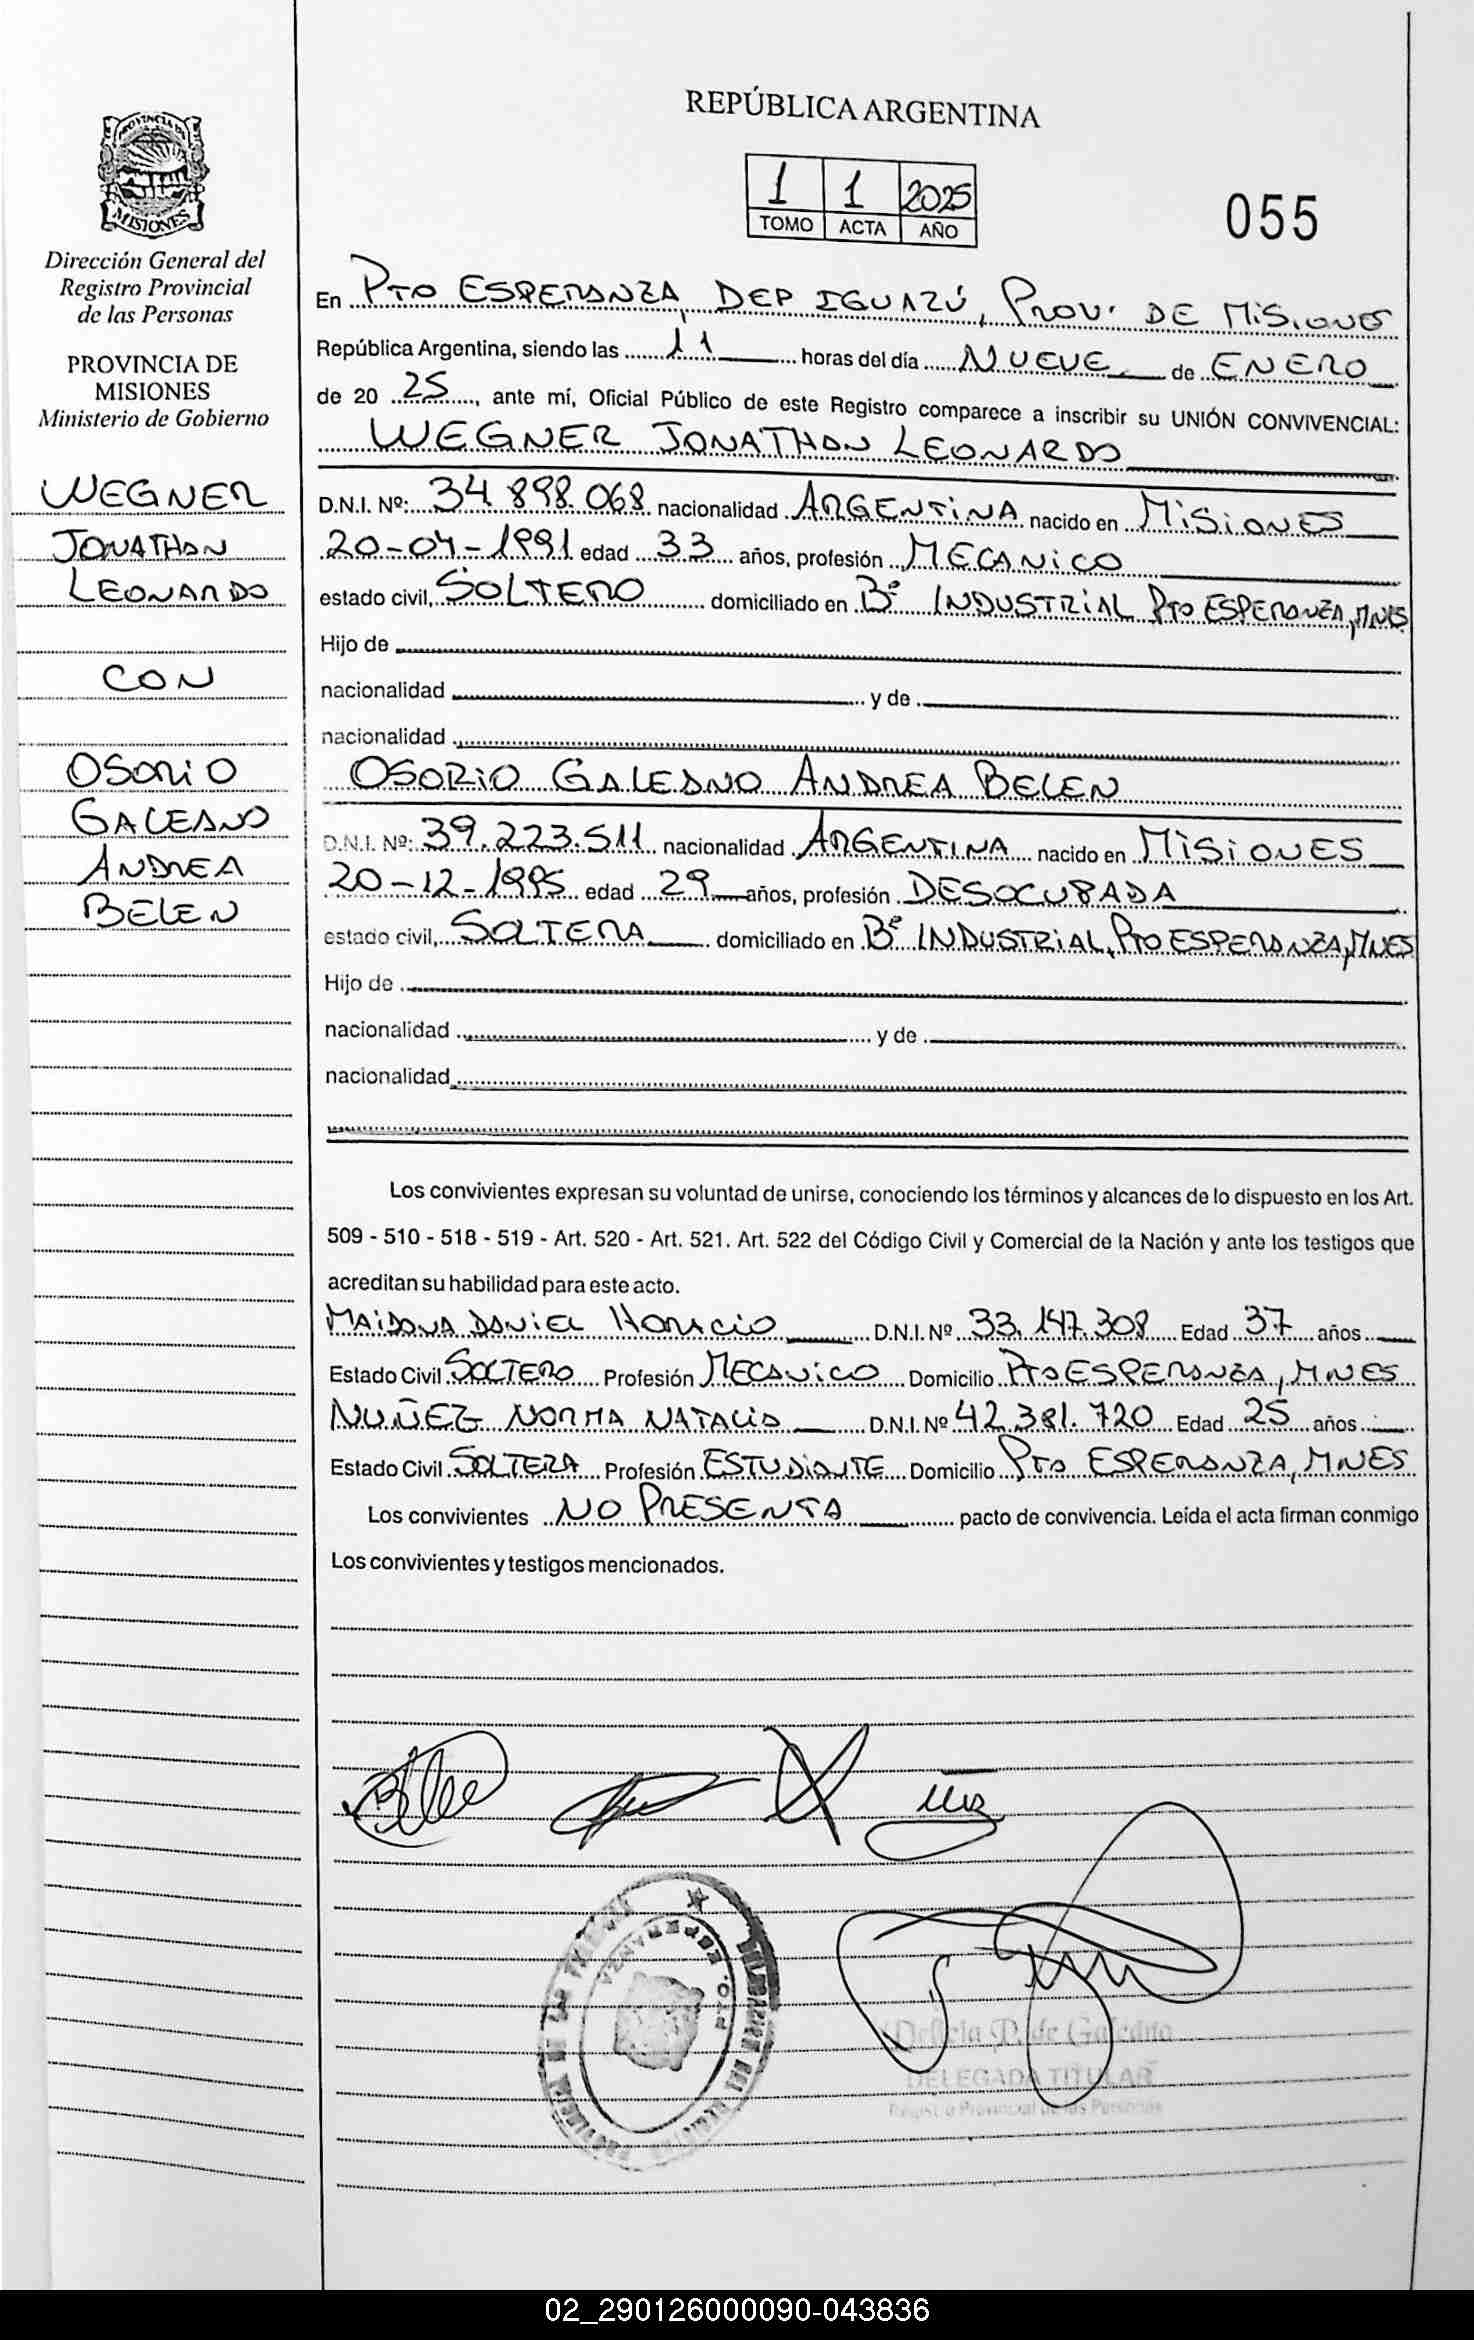 PROVINCIA DE
MISIONES
Dirección General del
Registro Provincial
de las Personas
PROVINCIA DE
MISIONES
Ministerio de Gobierno
WEGNER
JONATHAN
LEONARDO
CON
OSORIO
GALEANO
ANDREA
BELEN
REPÚBLICA ARGENTINA
1 1 2025
TOMO ACTA AÑO
055
En PTO ESPERANZA, DEP IGUAZÚ, PROV. DE MISIONES
República Argentina, siendo las 11 horas del día NUEVE de ENERO
de 20 25, ante mí, Oficial Público de este Registro comparece a inscribir su UNIÓN CONVIVENCIAL:
WEGNER JONATHAN LEONARDO
D.N.I. Nº: 34.898.068 nacionalidad ARGENTINA nacido en MISIONES
20-04-1991 edad 33 años, profesión MECANICO
estado civil, SOLTERO domiciliado en Bº INDUSTRIAL PTO ESPERANZA, MNES
Hijo de
nacionalidad y de
nacionalidad
OSORIO GALEANO ANDREA BELEN
D.N.I. Nº: 39.223.511 nacionalidad ARGENTINA nacido en MISIONES
20-12-1995 edad 29 años, profesión DESOCUPADA
estado civil, SOLTERA domiciliado en Bº INDUSTRIAL, PTO ESPERANZA, MNES
Hijo de
nacionalidad y de
nacionalidad
Los convivientes expresan su voluntad de unirse, conociendo los términos y alcances de lo dispuesto en los Art.
509 - 510 - 518 - 519 - Art. 520 - Art. 521. Art. 522 del Código Civil y Comercial de la Nación y ante los testigos que
acreditan su habilidad para este acto.
MAIDANA DANIEL HORACIO D.N.I. Nº 33.147.308 Edad 37 años
Estado Civil SOLTERO Profesión MECANICO Domicilio PTO ESPERANZA, MNES
NUÑEZ NORMA NATALIA D.N.I. Nº 42.381.720 Edad 25 años
Estado Civil SOLTERA Profesión ESTUDIANTE Domicilio PTO ESPERANZA, MNES
Los convivientes NO PRESENTA pacto de convivencia. Leída el acta firman conmigo
Los convivientes y testigos mencionados.
PTO. ESPERANZA
DELEGADA TITULAR
Registro Provincial de las Personas
02_290126000090-043836